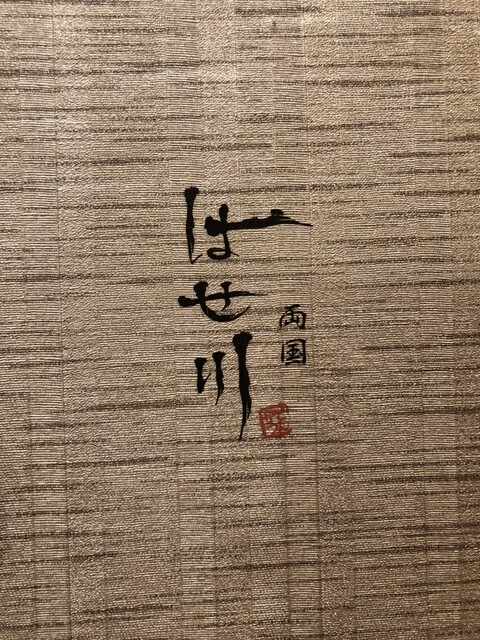 両国
はせ川